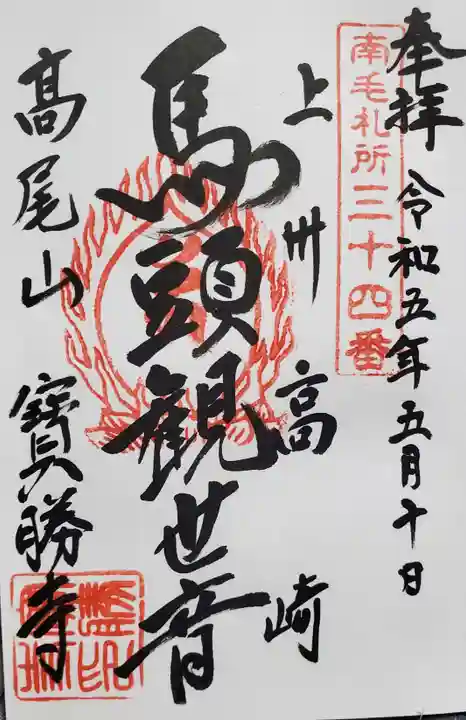 奉拝 令和五年五月十日
南毛札所三十四番
上州高崎
馬頭観世音
髙尾山 寳勝寺